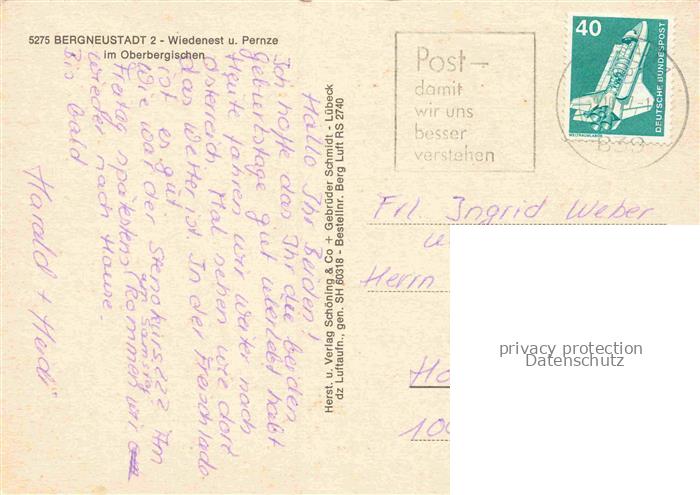 5275 BERGNEUSTADT 2 - Wiedenest u. Pernze
im Oberbergischen
Hallo Ihr Beiden!
Ich hoffe das Ihr die beiden
Geburtstage gut überlebt habt
Heute fahren wir weiter nach
Österreich. Mal sehen wie dort
das Wetter ist. In der Freischlade
ist es gut
Wie war der Stenokurs? Am
Freitag spätestens am Samstag kommen wir
wieder nach Hause.
Bis bald
Harald + Heidi
Herst. u. Verlag Schöning & Co + Gebrüder Schmidt - Lübeck
dz Luftaufn., gen. SH 60318 - Bestellnr. Berg Luft RS 2740
Post -
damit
wir uns
besser
verstehen
40
DEUTSCHE BUNDESPOST
WELTRAUMLABOR
Frl. Ingrid Weber
Herrn
Ho
100
privacy protection
Datenschutz